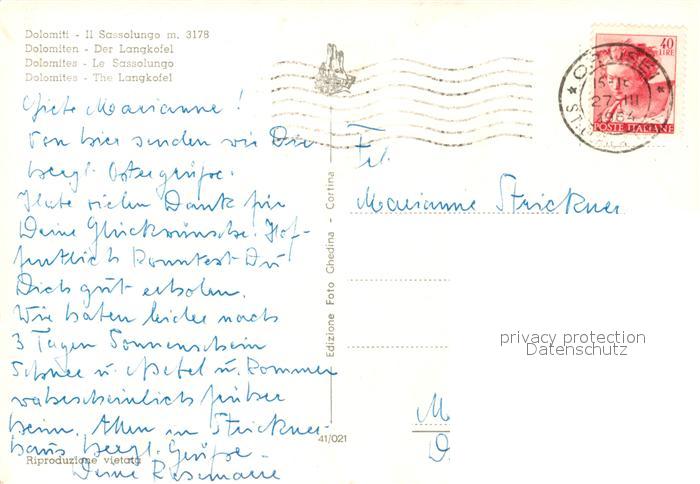 Dolomiti - Il Sassolungo m. 3178
Dolomiten - Der Langkofel
Dolomites - Le Sassolungo
Dolomites - The Langkofel
Liebe Marianne!
Von hier senden wir Dir
herzl. Ostergrüße.
Habe vielen Dank für
Deine Glückwünsche. Hof-
fentlich konntest Du
Dich gut erholen.
Wir haben leider nach
3 Tagen Sonnenschein
Schnee u. Nebel u. kommen
wahrscheinlich früher
heim. Allen im Strickner-
haus herzl. Grüße.
Deine Rosemarie
Riproduzione vietata
Edizione Foto Ghedina - Cortina
41/021
40
LIRE
POSTE ITALIANE
ORTISEI
27 III
1964
Frl.
Marianne Strickner
M
D.
privacy protection
Datenschutz